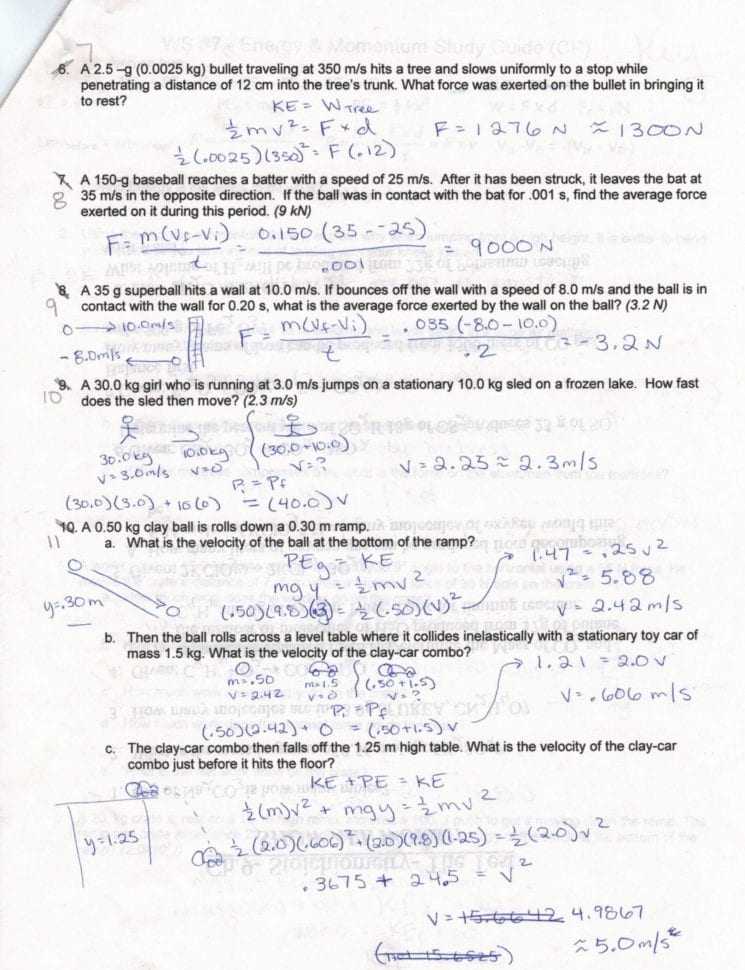 WS 37 - Energy & Momentum Study Guide (CP)
7
6. A 2.5 –g (0.0025 kg) bullet traveling at 350 m/s hits a tree and slows uniformly to a stop while
penetrating a distance of 12 cm into the tree's trunk. What force was exerted on the bullet in bringing it
to rest?
KE = W Tree
½mv² = F × d F = 1276 N ≈ 1300N
½(.0025)(350)² = F(.12)
7. A 150-g baseball reaches a batter with a speed of 25 m/s. After it has been struck, it leaves the bat at
8 35 m/s in the opposite direction. If the ball was in contact with the bat for .001 s, find the average force
exerted on it during this period. (9 kN)
F = m(Vf-Vi) = 0.150(35 - -25) = 9000 N
t .001
8. A 35 g superball hits a wall at 10.0 m/s. If bounces off the wall with a speed of 8.0 m/s and the ball is in
9 contact with the wall for 0.20 s, what is the average force exerted by the wall on the ball? (3.2 N)
10.0m/s F = m(Vf-Vi) = .035(-8.0-10.0) = -3.2 N
-8.0m/s t .2
9. A 30.0 kg girl who is running at 3.0 m/s jumps on a stationary 10.0 kg sled on a frozen lake. How fast
10 does the sled then move? (2.3 m/s)
30.0kg 10.0kg (30.0+10.0)
V=3.0m/s V=0 V=? V = 2.25 ≈ 2.3m/s
Pi = Pf
(30.0)(3.0) + 10(0) = (40.0)V
10. A 0.50 kg clay ball is rolls down a 0.30 m ramp.
11 a. What is the velocity of the ball at the bottom of the ramp?
PEg = KE 1.47 = .25v²
mgy = ½mv² v² = 5.88
y=.30m (.50)(9.8)(.3) = ½(.50)(V)² V = 2.42m/s
b. Then the ball rolls across a level table where it collides inelastically with a stationary toy car of
mass 1.5 kg. What is the velocity of the clay-car combo?
1.21 = 2.0V
m=.50 m=1.5 (.50+1.5)
V=2.42 V=0 V=? V = .606 m/s
Pi = Pf
(.50)(2.42) + 0 = (.50+1.5)V
c. The clay-car combo then falls off the 1.25 m high table. What is the velocity of the clay-car
combo just before it hits the floor?
KE + PE = KE
½(m)v² + mgy = ½mv²
y=1.25 ½(2.0)(.606)² + (2.0)(9.8)(1.25) = ½(2.0)v²
.3675 + 24.5 = V²
V = 4.9867
≈ 5.0m/s